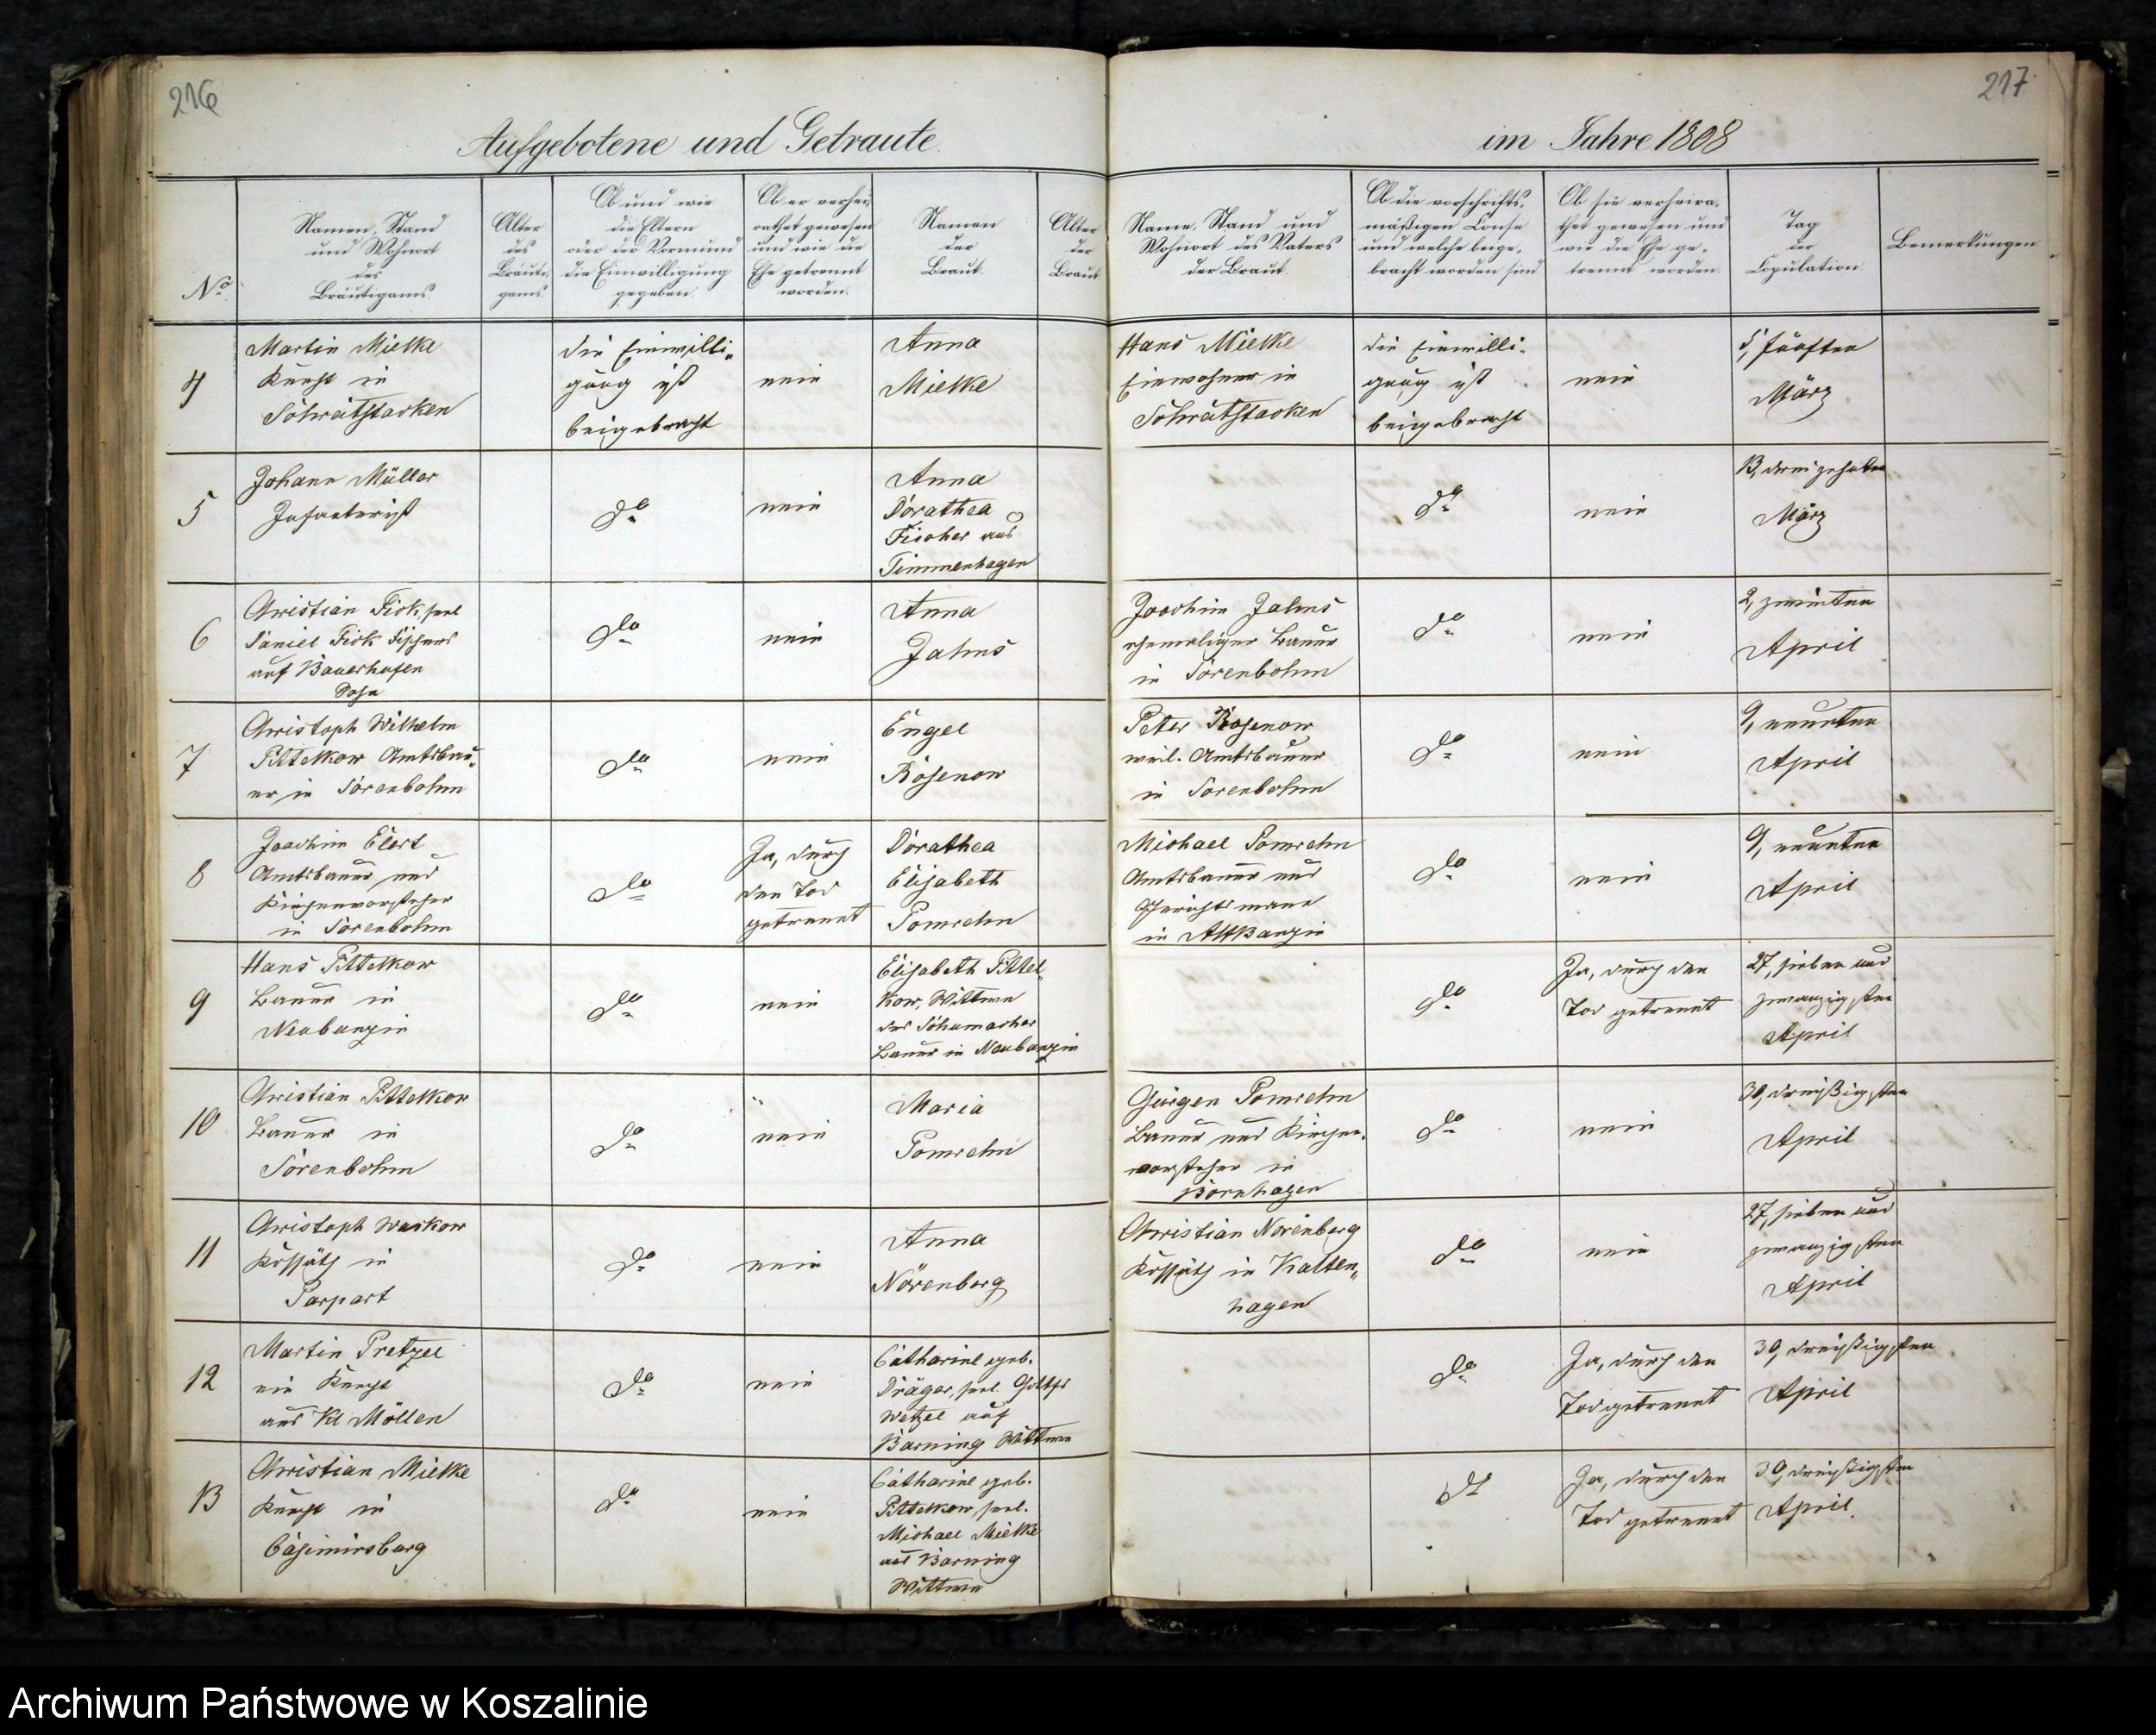 216
217
Aufgebotene und Getraute
im Jahre 1808
No.
Namen, Stand
und Wohnort
des
Bräutigams.
Alter
des
Bräuti-
gams.
Ob und wie
die Eltern
oder der Vormund
die Einwilligung
gegeben.
Ob er verhei-
rathet gewesen
und wie die
Ehe getrennt
worden.
Namen
der
Braut.
Alter
der
Braut
Name, Stand und
Wohnort des Vaters
der Braut.
Ob die vorschrifts-
mäßigen Consense
und welche beige-
bracht worden sind
Ob sie verheira-
thet gewesen und
wie die Ehe ge-
trennt worden.
Tag
der
Copulation.
Bemerkungen
4
Martin Mielke
Knecht in
die Einwilli-
gung ist
beigebracht
nein
Anna
Mielke
Hans Mielke
Einwohner in
die Einwilli-
gung ist
beigebracht
nein
5, fünften
März
5
Johann Müller
Infanterist
do
nein
Anna
Dorathea
Fischer aus
Timmenhagen
do
nein
13, dreizehnten
März
6
Christian Fick, sel
Daniel Fick Fischers
auf Bauerhufen
Sohn
do
nein
Anna
Jahns
Joachim Jahns
ehemaliger Bauer
in Sorenbohm
do
nein
2, zweiten
April
7
Christoph Wilhelm
Pittelkow Amtsbau-
er in Sorenbohm
do
nein
Engel
Rosenow
Peter Rosenow
weil. Amtsbauer
in Sorenbohm
do
nein
9, neunten
April
8
Joachim Elert
Amtsbauer und
Kirchenvorsteher
in Sorenbohm
do
Ja, durch
den Tod
getrennt
Dorathea
Elisabeth
Pomrehn
Michael Pomrehn
Amtsbauer und
Gerichtsmann
in AltBanzin
do
nein
9, neunten
April
9
Hans Pittelkow
Bauer in
Neubanzin
do
nein
Elisabeth Pittel-
kow, Wittwe
des Schumacher
Bauer in Neubanzin
do
Ja, durch den
Tod getrennt
27, sieben und
zwanzigsten
April
10
Christian Pittelkow
Bauer in
Sorenbohm
do
nein
Maria
Pomrehn
Gürgen Pomrehn
Bauer und Kirchen-
vorsteher in
Bornhagen
do
nein
30, dreißigsten
April
11
Christoph Waskow
Kossäth in
Parpart
do
nein
Anna
Nörenberg
Christian Norenberg
Kossäth in Kalten-
hagen
do
nein
27, sieben und
zwanzigsten
April
12
Martin Pretzel
ein Knecht
aus Kl Möllen
do
nein
Catharine geb.
Dräger, sel.
Wetzel auf
Barning Wittwe
do
Ja, durch den
Tod getrennt
30, dreißigsten
April
13
Christian Mielke
Knecht in
Casimirsburg
do
nein
Catharine geb.
Pittelkow, sel.
Michael Mielke
aus Barning
Wittwe
do
Ja, durch den
Tod getrennt
30, dreißigsten
April.
Archiwum Państwowe w Koszalinie